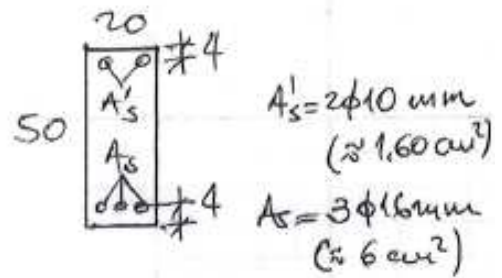 20
4
A's
50
As
4
A's = 2ϕ10 mm
(≈ 1,60 cm²)
As = 3ϕ16 mm
(≈ 6 cm²)